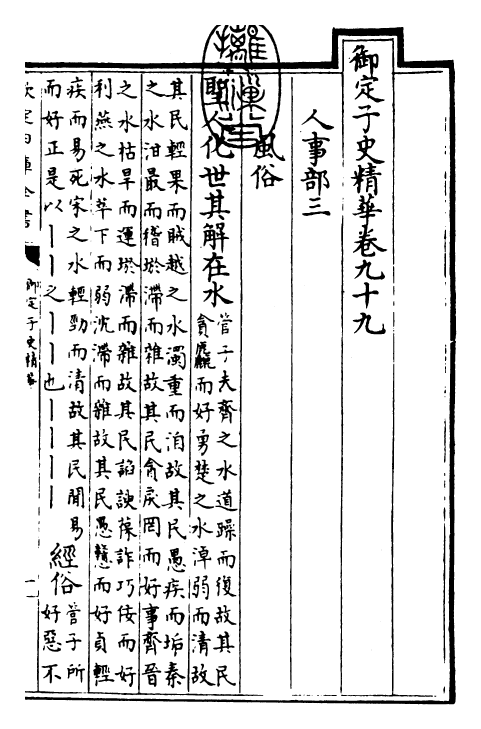 御定子史精華卷九十九
人事部三
風俗
聖人化世其解在水
管子夫齊之水道躁而復故其民
貪麤而好勇楚之水淖弱而清故
其民輕果而賊越之水濁重而洎故其民愚疾而垢秦
之水泔最而稽淤滯而雜故其民貪戾罔而好事齊晉
之水枯旱而運淤滯而雜故其民諂諛葆詐巧佞而好
利燕之水萃下而弱沈滯而雜故其民愚戇而好貞輕
疾而易死宋之水輕勁而清故其民閒易
而好正是以｜｜之｜｜也｜｜｜｜
經俗
管子所
好惡不
欽定四庫全書
御定子史精華
一